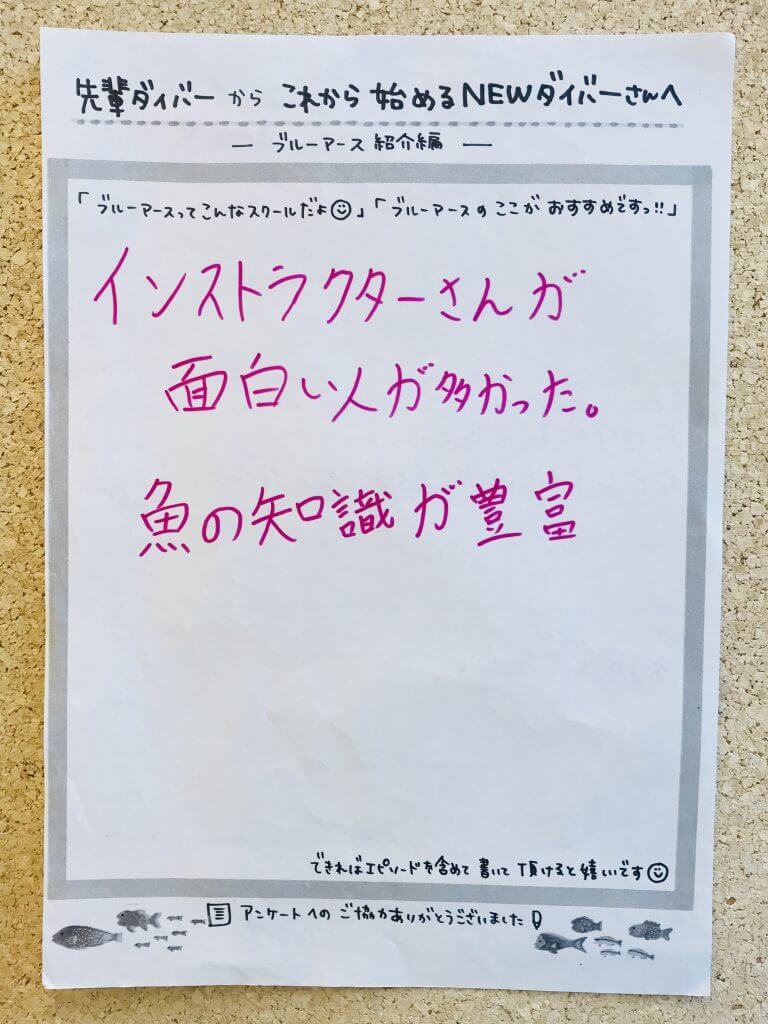 先輩ダイバーから これから始めるNEWダイバーさんへ
― ブルーアース紹介編 ―
「ブルーアースってこんなスクールだよ☺」「ブルーアースの ここが おすすめですっ!!」
インストラクターさんが
面白い人が多かった。
魚の知識が豊富
できればエピソードを含めて 書いて 頂けると嬉しいです☺
アンケートへの ご協力ありがとうございました